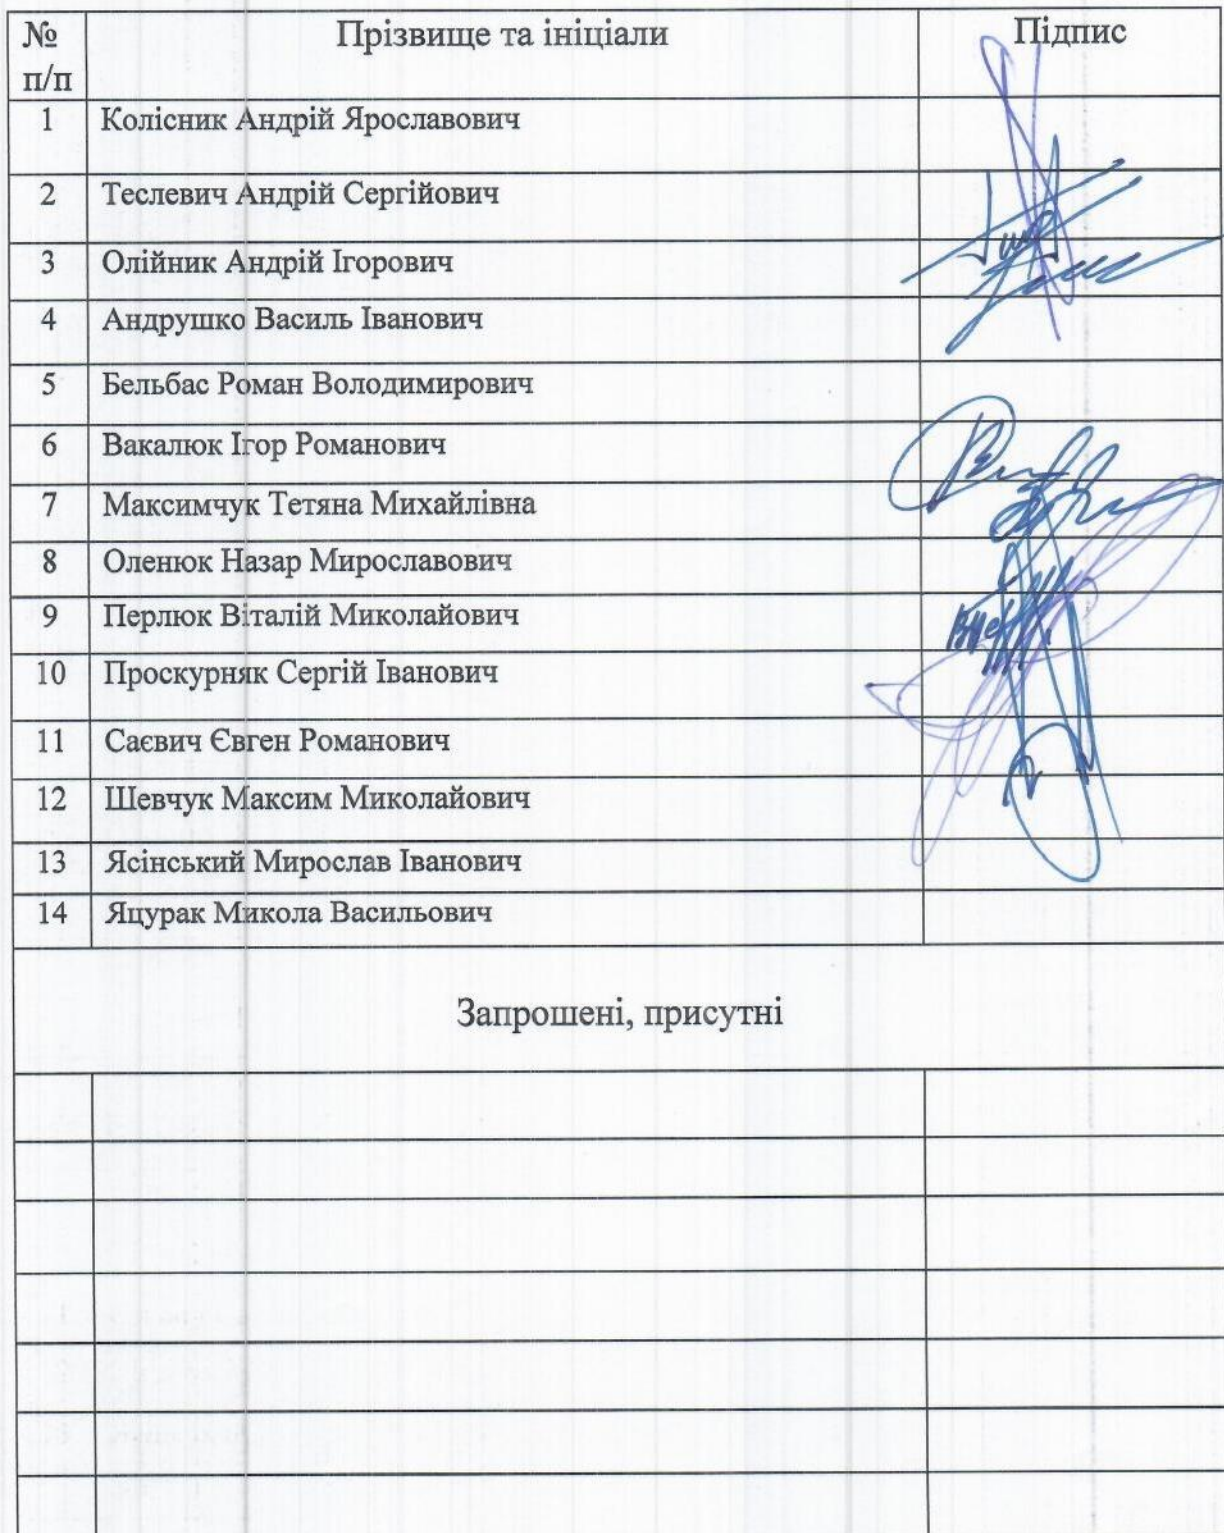 № Прізвище та ініціали Підпис
п/п
1 Колісник Андрій Ярославович
2 Теслевич Андрій Сергійович
3 Олійник Андрій Ігорович
4 Андрушко Василь Іванович
5 Бельбас Роман Володимирович
6 Вакалюк Ігор Романович
7 Максимчук Тетяна Михайлівна
8 Оленюк Назар Мирославович
9 Перлюк Віталій Миколайович
10 Проскурняк Сергій Іванович
11 Саєвич Євген Романович
12 Шевчук Максим Миколайович
13 Ясінський Мирослав Іванович
14 Яцурак Микола Васильович
Запрошені, присутні